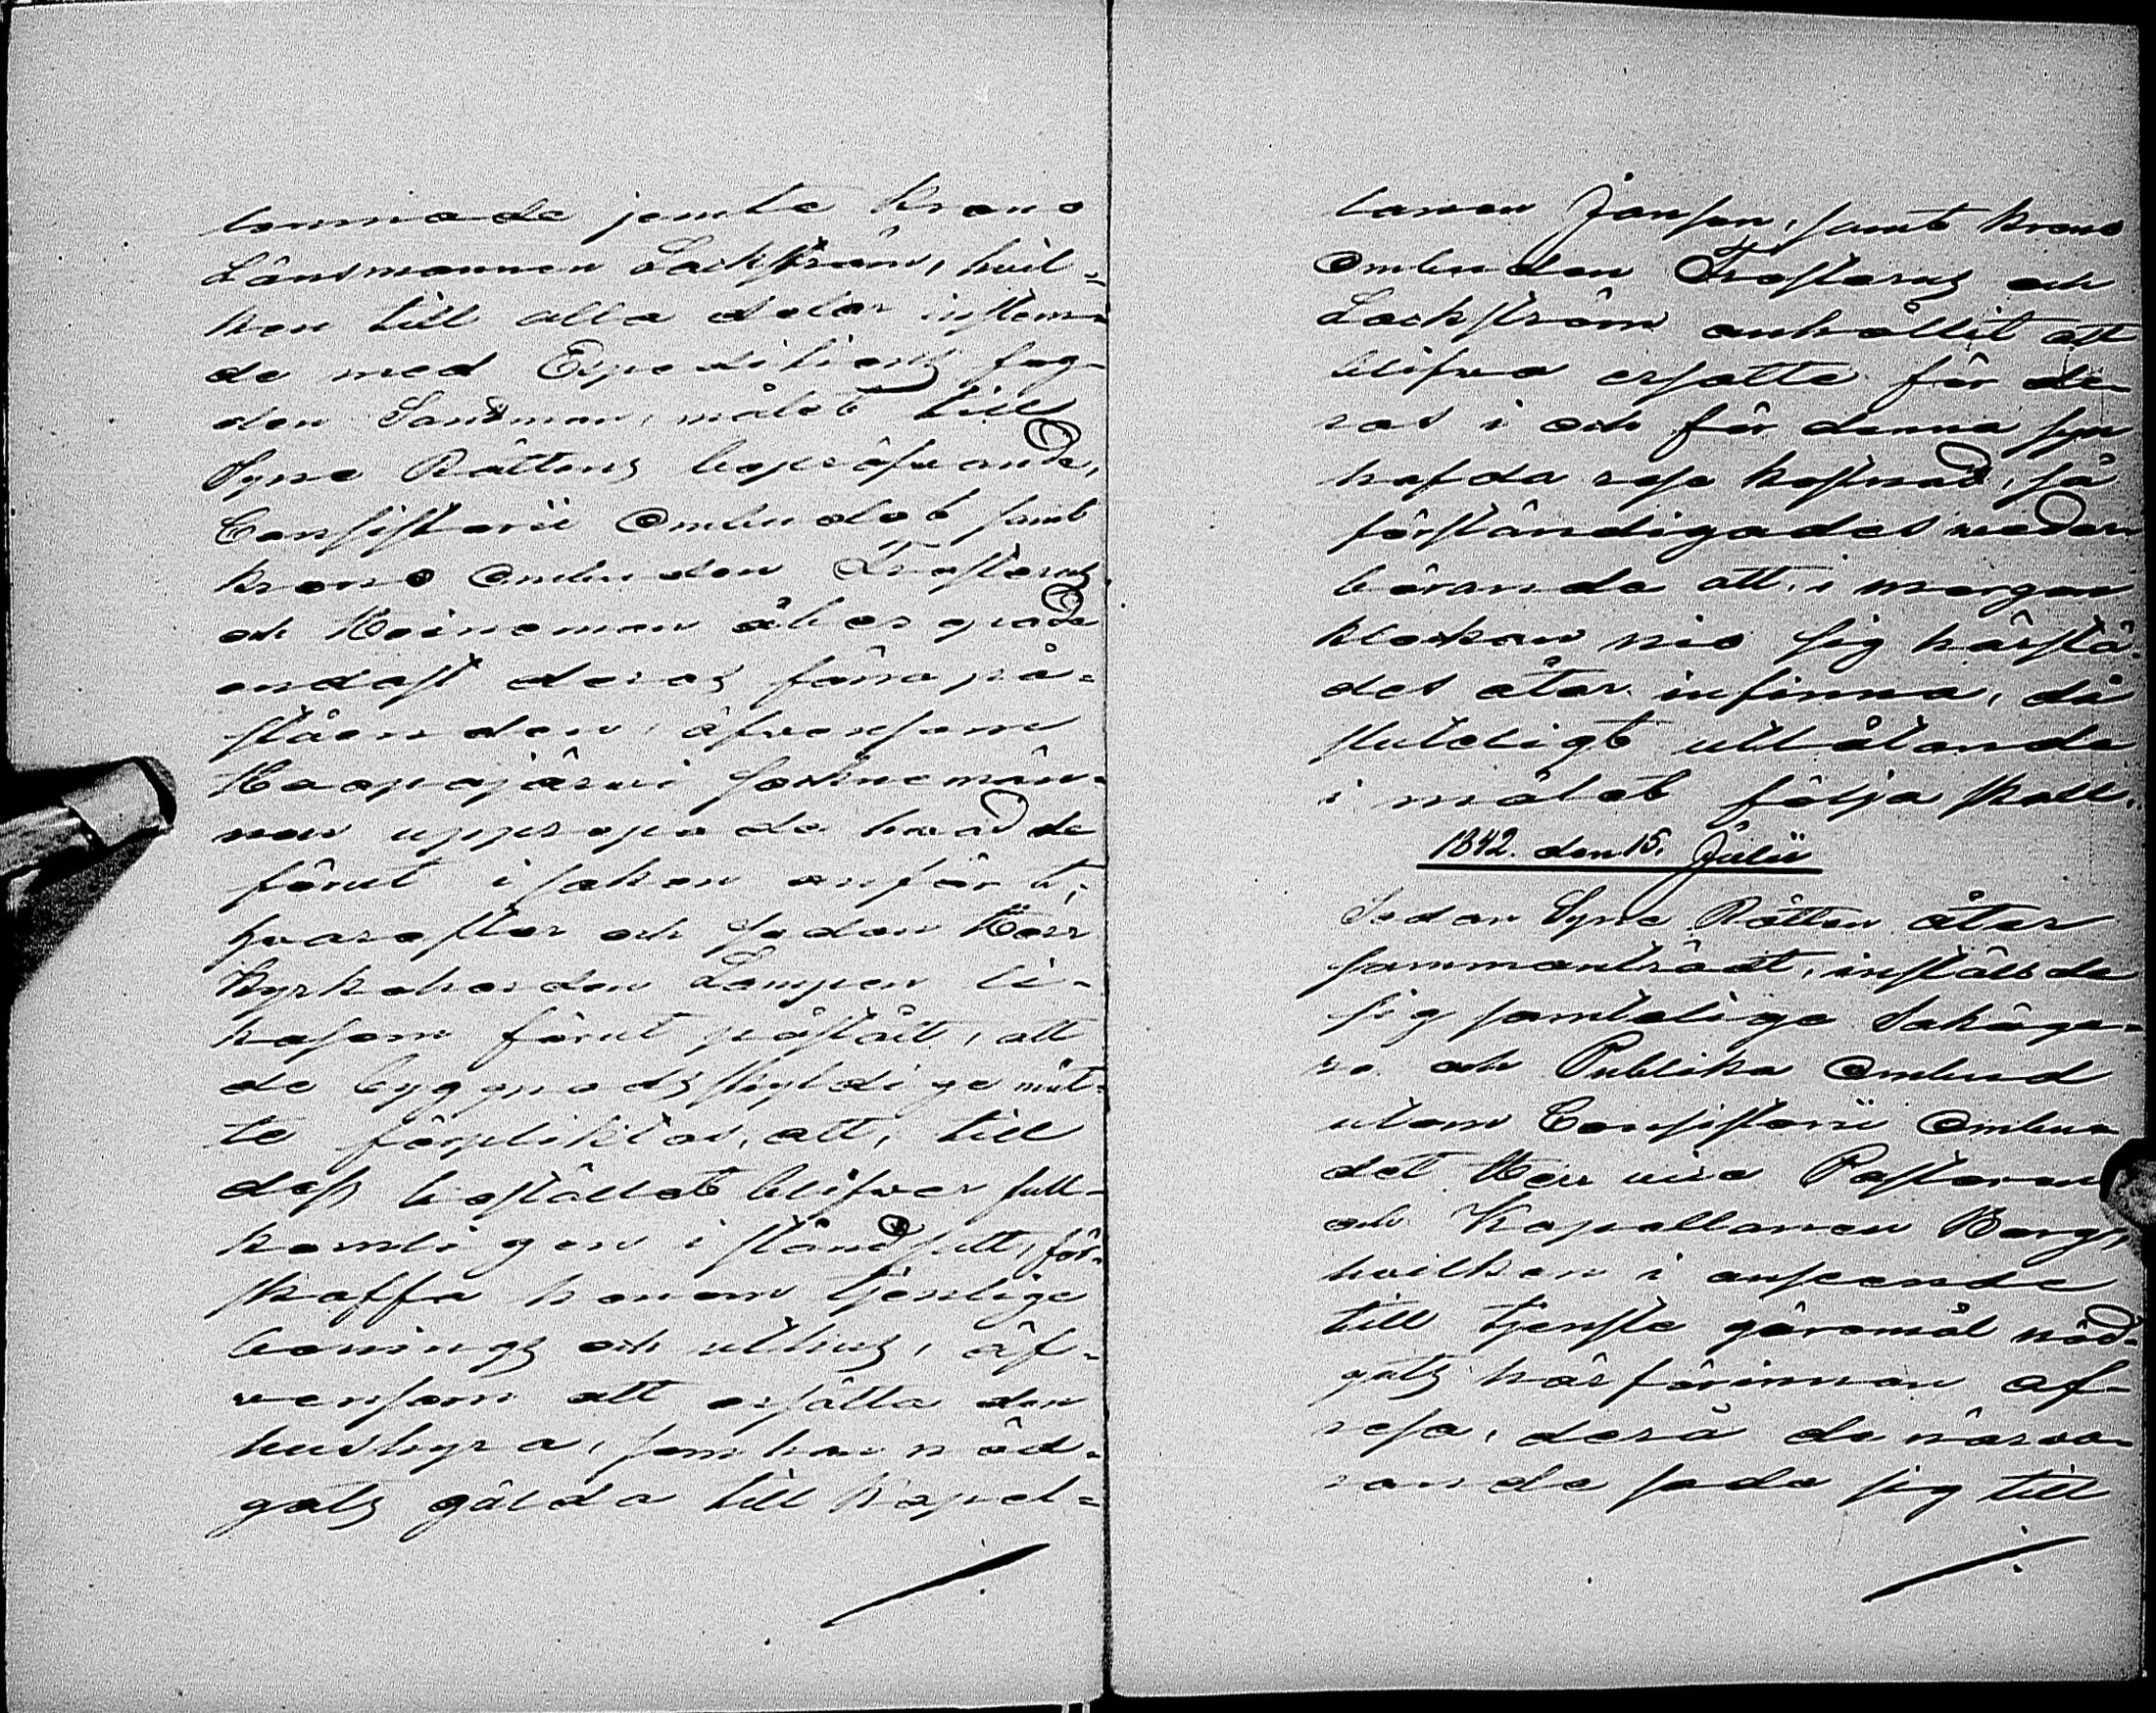 lemnade jemte Krono
Länsmannen Lackström, hvil-
ken till alla delar instäm-
de med Expeditions fog-
den Sandman, målet till
Syne Rättens bepröfvande,
Consistorii Ombudet samt
krono Ombuden
och Heineman åberopade
endast deras förra på-
ståenden, äfvensom
Haapajärvi sockne män-
nen upprepade hvad de
förut i saken anfört;
hvarefter och sedan Herr
Kyrkoherden Lampen li-
kasom förut påstått, att
de byggnadsskyldige måt-
te förpliktas, att, till
dess bostället blifver full-
komligen i ståndsatt, för-
skaffa honom tjenlige
bonings och uthus, äf-
vensom att ersätta den
hushyra, som han nöd-
gats gälda till Kapel-
lanen Jansson, samt krono
Ombuden och
Lackström anhållit att
blifva ersatte för de-
ras i och för denna syn
hafda rese kostnad, så
förständigades veder-
börande att i morgon
klockan nio sig härstä-
des åter infinna, då
sluteligt utlåtande
i målet följa skall.
1842. den 15. Julii
Sedan Syne Rätten åter
sammanträdt, inställde
sig samtelige Sakäga-
re och Publika Ombud
utom Consistorii Ombu-
det Herr vice Pastoren
och Kapellanen Berg,
hvilken i anseende
till tjenste göromål nöd-
gats härförinnan af-
resa, derå de närva-
rande sade sig till